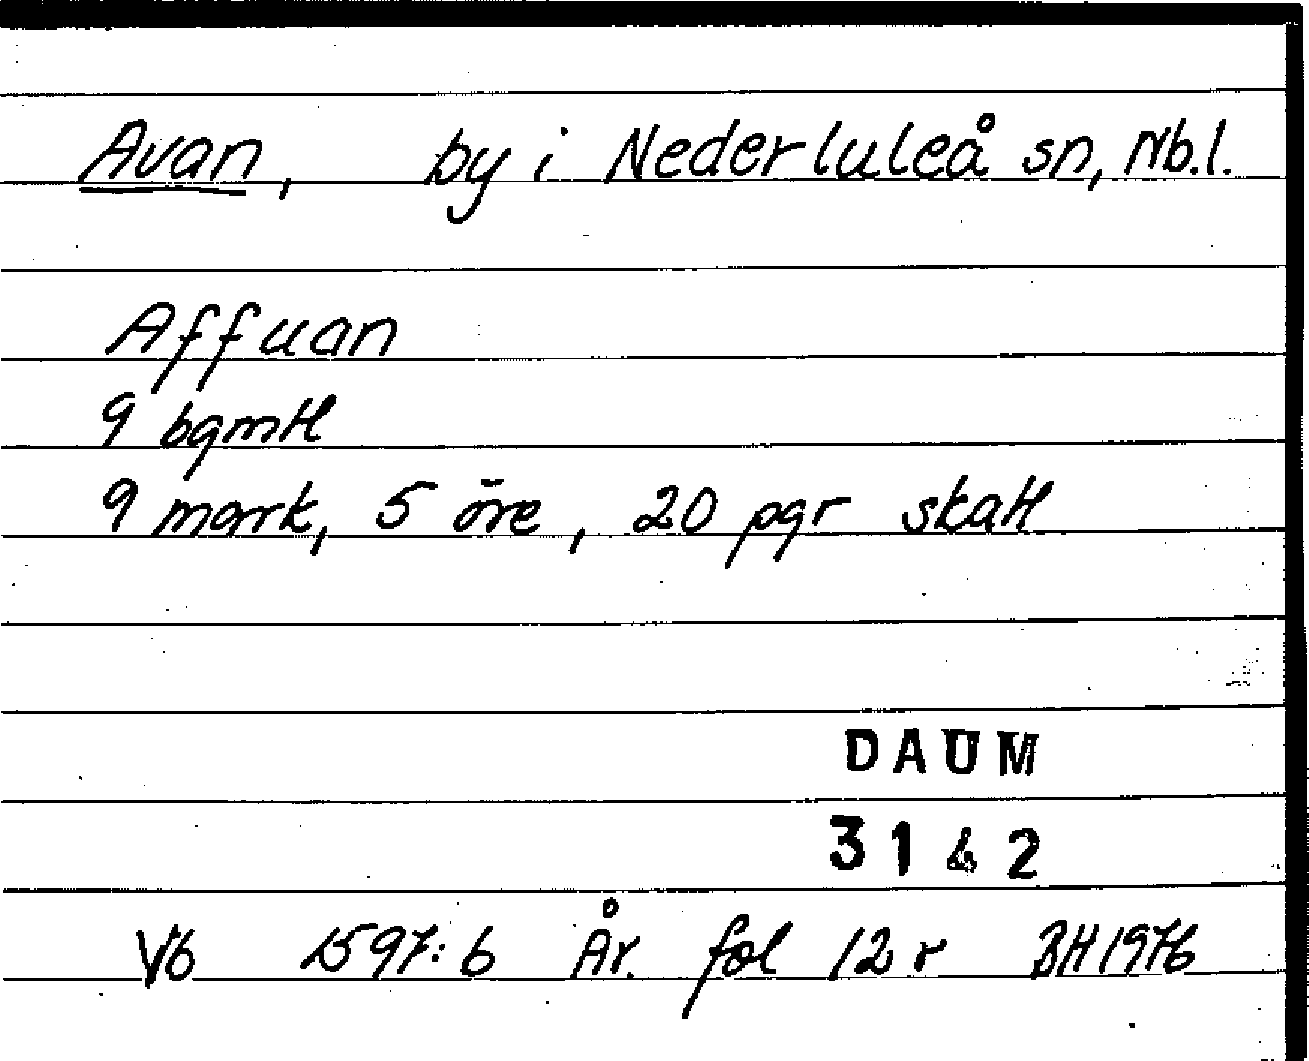 Avan, by i Nederluleå sn, Nb.l.
Affuan
9 bgmtl
9 mark, 5 öre, 20 pgr skatt
DAUM
3142
Vb 1597:6 År. fol 12 r BH 1976